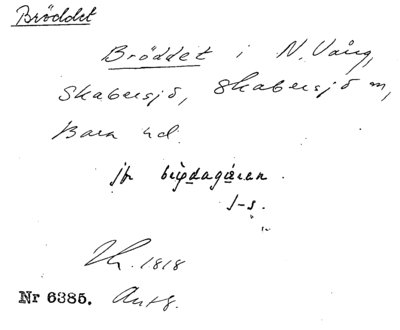 Bröddet
Bröddet i N. Vång,
Skabersjö, Skabersjö sn,
Bara hd.
jfr
1-s.
1818
Nr 6385.